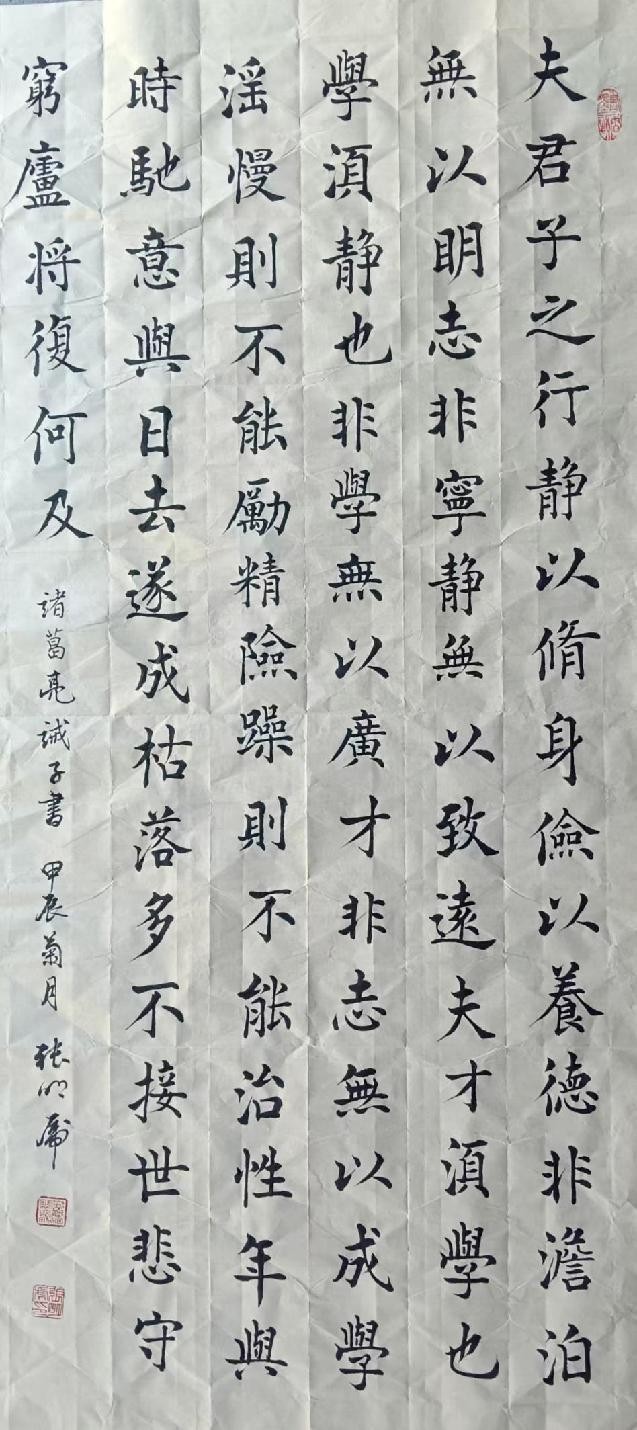 夫君子之行静以脩身儉以養德非澹泊
無以明志非寧静無以致遠夫才須學也
學須静也非學無以廣才非志無以成學
淫慢則不能勵精險躁則不能治性年與
時馳意與日去遂成枯落多不接世悲守
窮廬将復何及
諸葛亮誡子書 甲辰菊月 張明